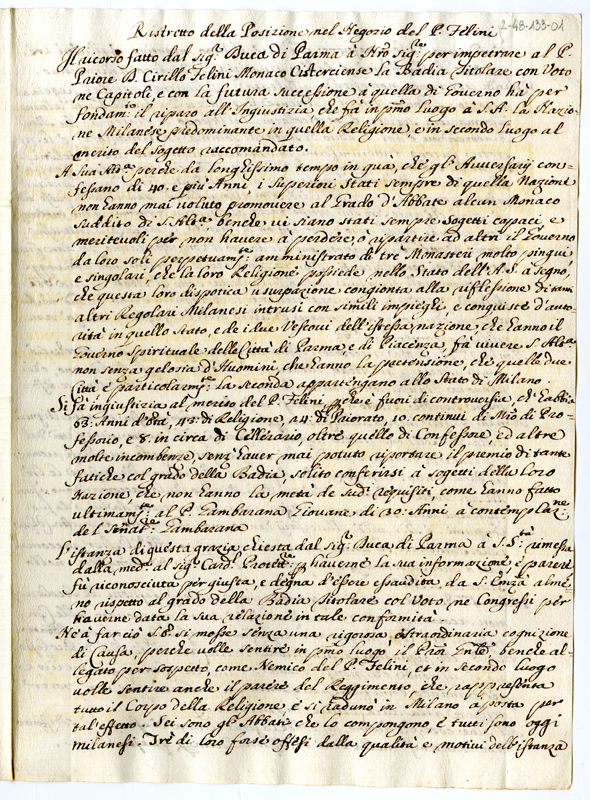 Ristretto della Posizione nel Negozio del P. Felini
2-48-133-01
Il ricorso fatto dal Sigr. Duca di Parma à Nro Sigre per impetrare al P.
Priore D. Cirillo Felini Monaco Cisterciense la Badia Titolare con Voto
ne Capitoli, e con la futura successione à quella di Governo hà per
fondamto: il riparo all'Ingiustizia che fà in pmo luogo à S.A. la Nazio=
ne Milanese predominante in quella Religione, e in secondo luogo al
merito del Sogetto raccomandato.
A Sua Altza perche da longhissimo tempo in quà, che gl'Avversarij con=
fessano di 40. e più Anni, i Superiori Stati sempre di quella Nazione
non hanno mai voluto promovere al Grado d'Abbate alcun Monaco
suddito di S. Altza, benche vi siano stati sempre Sogetti capaci, e
meritevoli per non havere à perdere, ò ripartire ad altri il Governo
da loro soli perpetuamte: amministrato di trè Monasteri molto pingui
e singolari, che la loro Religione possiede nello Stato dell'A.S. à segno,
che questa loro dispotica usurpazione congionta alla riflessione di tanti
altri Regolari Milanesi intrusi con simili impieghi, e conquiste d'auto=
rità in quello Stato, e de i due Vescovi dell'istessa nazione, che hanno il
Governo Spirituale delle Città di Parma, e di Piacenza, fà vivere S. Altza
non senza gelosia d'Huomini, che hanno la pretensione, che quelle due
Città e particolarmte la seconda appartengano allo Stato di Milano.
Si fà ingiustizia al merito del P. Felini, perche è fuori di controversia, ch'habbia
63: Anni d'età, 43: di Religione, 24. di Priorato, 10. continui di Mro di Pro=
fessorio, e 8. in circa di Cellerario, oltre quello di Confessore, ed altre
molte incombenze, senz'haver mai potuto riportare il premio di tante
fatiche col grado della Badia, solito conferirsi à sogetti della loro
Nazione, che non hanno la metà de Sudi requisiti, come hanno fatto
ultimamte: al P. Gambarana Giovane di 30: Anni à contemplazne:
del Senatre Gambarana
L'istanza di questa grazia chiesta dal Sigr. Duca di Parma à S. Stà: rimessa
dalla medma al Sigr. Card: Protettre: per haverne la sua informazione, e parere
fù riconosciuta per giusta, e degna d'essere essaudita, da S. Emza: alme=
no rispetto al grado della Badia Titolare col Voto, ne Congressi per
haverne data la sua relazione in tale conformità.
Nè à far ciò S.E. si mosse senza una rigorosa, e straordinaria cognizione
di Causa, perche volle sentire in pmo luogo il Prē Gnle, benche al=
legato per sospetto, come Nemico del P. Felini, et in secondo luogo
volle sentire anche il parere del Reggimento, che rappresenta
tutto il Corpo della Religione, e si radunò in Milano à posta per
tal'effetto. Sei sono gl'Abbati che lo compongono, e tutti sono oggi
milanesi. Trè di loro forse offesi dalla qualità e motivi dell'istanza